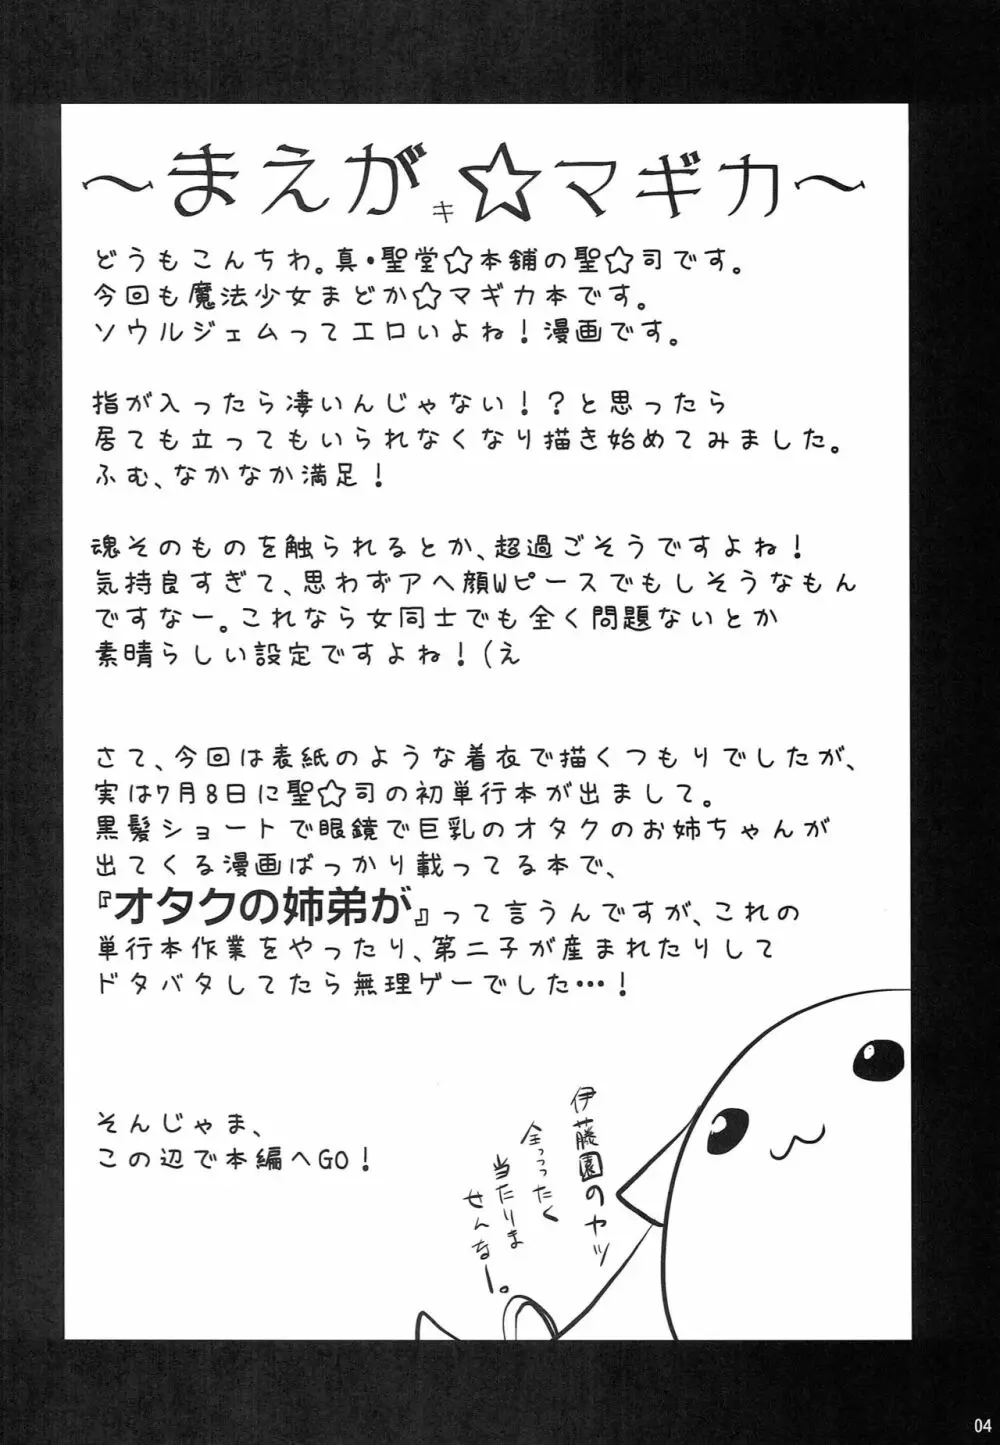 ～まえがキ☆マギカ～
どうもこんちわ。真・聖堂☆本舗の聖☆司です。
今回も魔法少女まどか☆マギカ本です。
ソウルジェムってエロいよね！漫画です。
指が入ったら凄いんじゃない！？と思ったら
居ても立ってもいられなくなり描き始めてみました。
ふむ、なかなか満足！
魂そのものを触られるとか、超過ごそうですよね！
気持良すぎて、思わずアヘ顔Wピースでもしそうなもん
ですなー。これなら女同士でも全く問題ないとか
素晴らしい設定ですよね！(え
さて、今回は表紙のような着衣で描くつもりでしたが、
実は7月8日に聖☆司の初単行本が出まして。
黒髪ショートで眼鏡で巨乳のオタクのお姉ちゃんが
出てくる漫画ばっかり載ってる本で、
『オタクの姉弟が』って言うんですが、これの
単行本作業をやったり、第二子が産まれたりして
ドタバタしてたら無理ゲーでした…！
そんじゃま、
この辺で本編へGO！
伊藤園のヤツ
全っっったく
当たりま
せんなー。
04